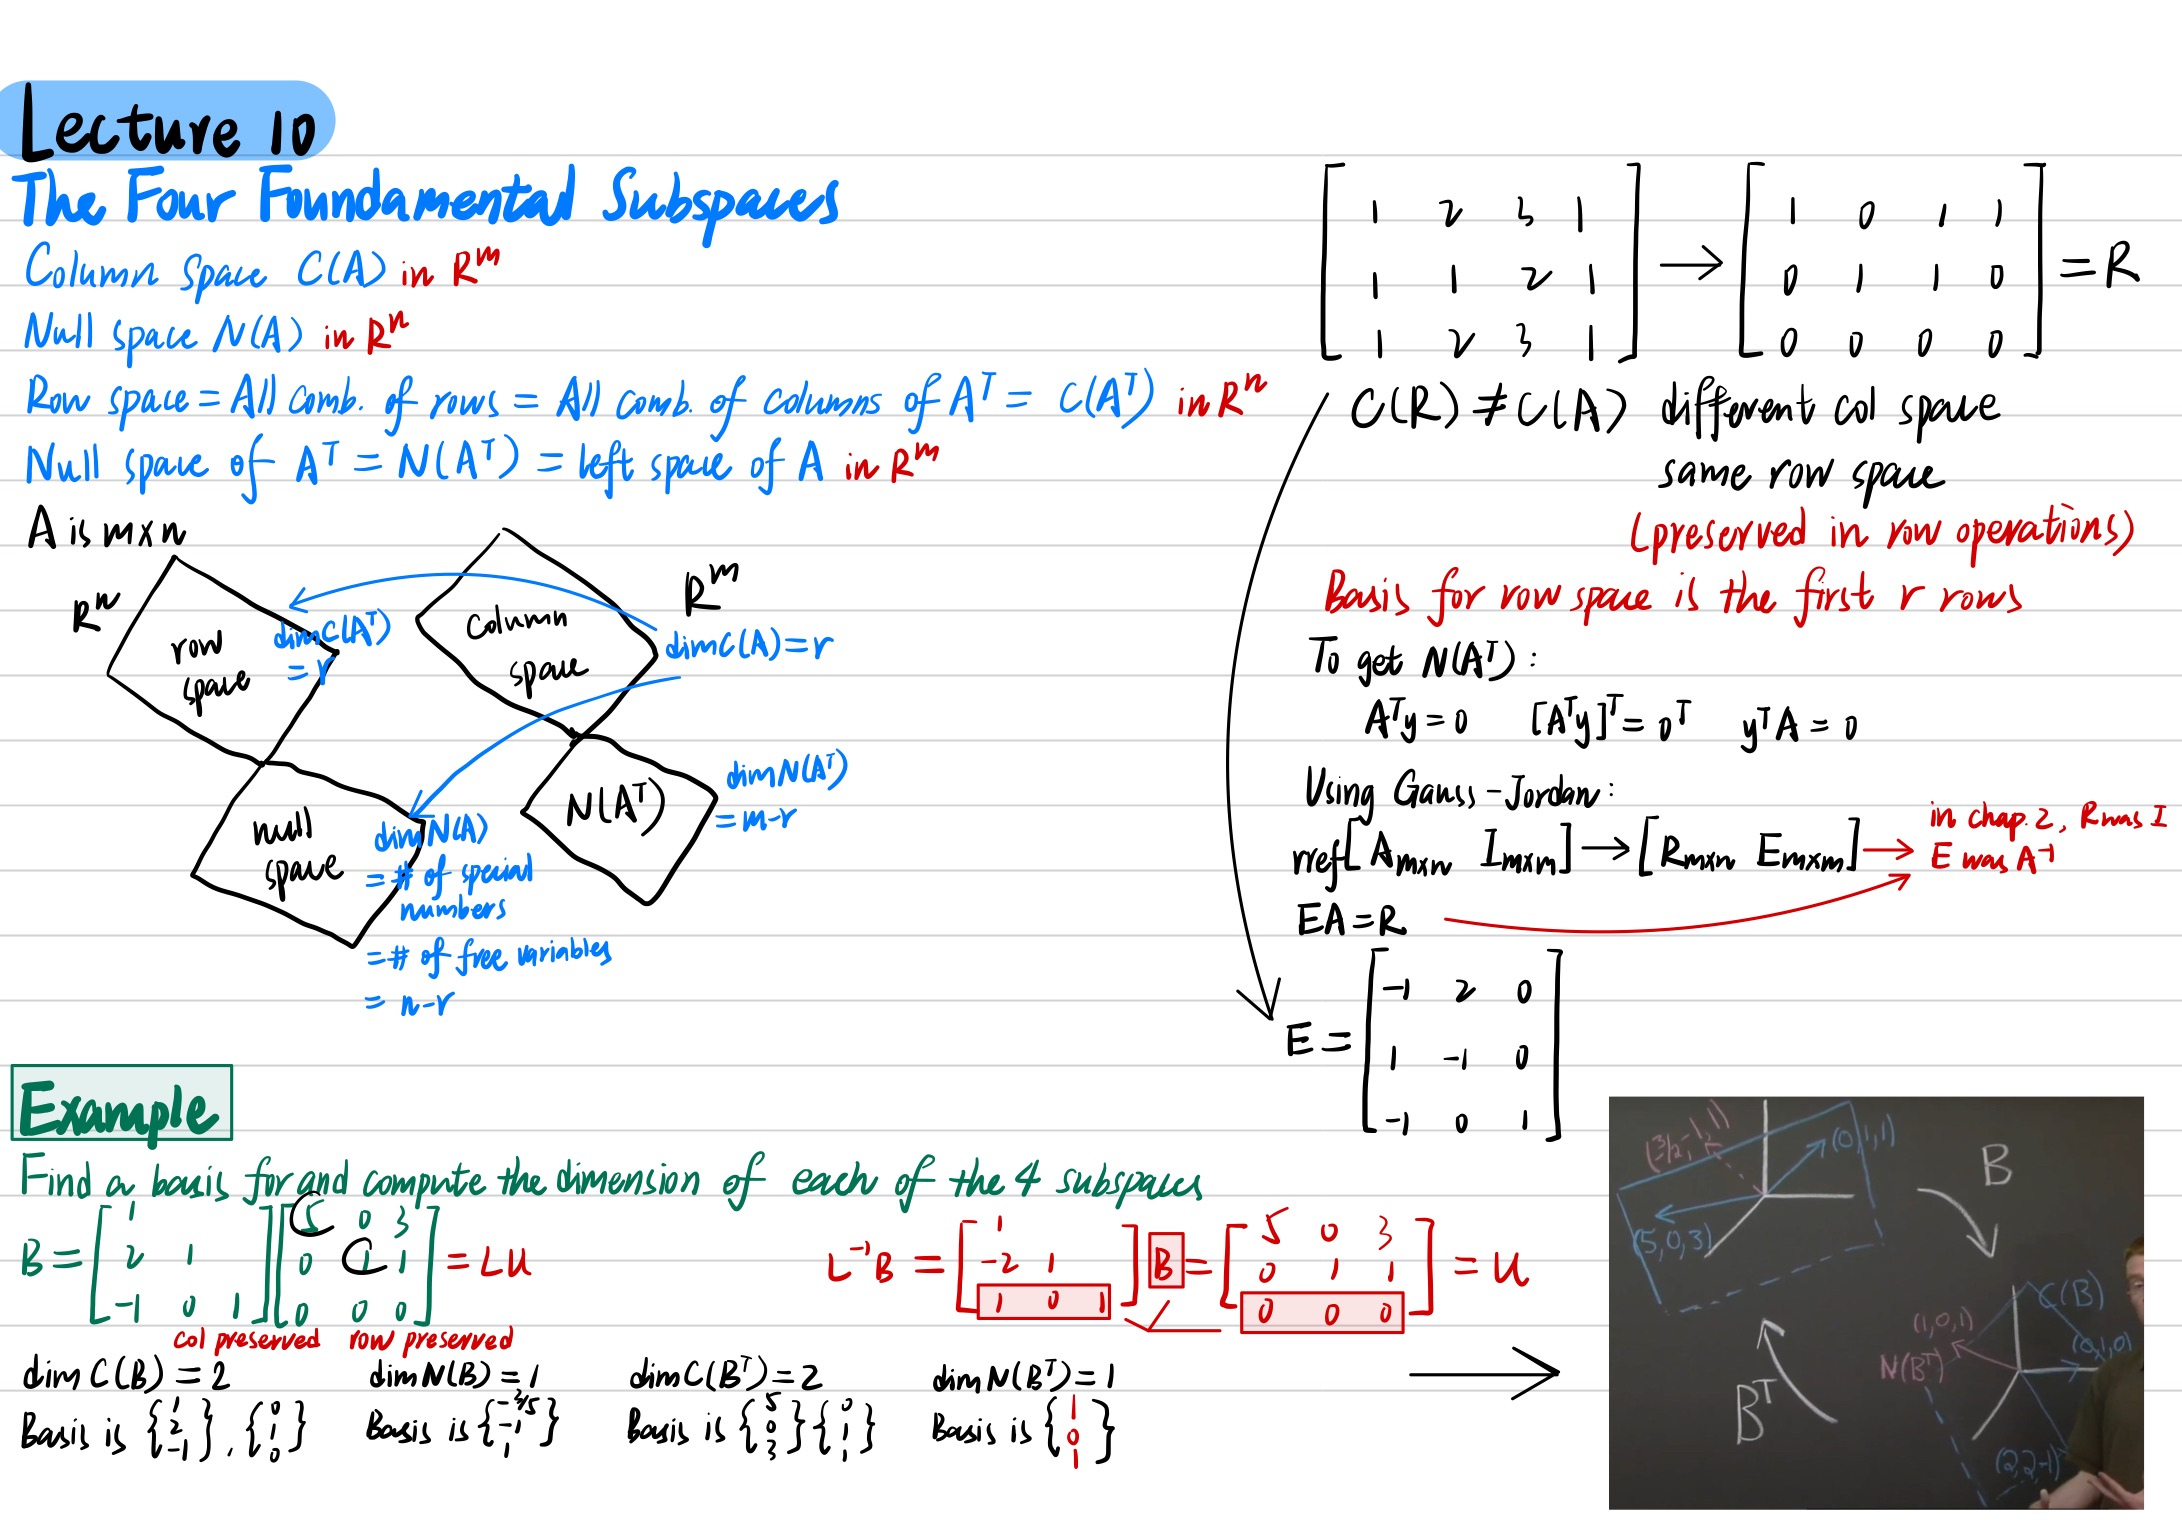 Lecture 10
The Four Foundamental Subspaces
Column Space C(A) in Rᵐ
Null space N(A) in Rⁿ
Row space = All comb. of rows = All comb. of columns of Aᵀ = C(Aᵀ) in Rⁿ
Null space of Aᵀ = N(Aᵀ) = left space of A in Rᵐ
A is m×n
Rⁿ
row space
dimC(Aᵀ) = r
Column space
Rᵐ
dimC(A) = r
null space
dimN(A)
= # of special numbers
= # of free variables
= n-r
N(Aᵀ)
dimN(Aᵀ)
= m-r
[1 2 3 1 → [1 0 1 1
1 1 2 1 0 1 1 0 = R
1 2 3 1] 0 0 0 0]
C(R) ≠ C(A) different col space
same row space
(preserved in row operations)
Basis for row space is the first r rows
To get N(Aᵀ):
Aᵀy = 0 [Aᵀy]ᵀ = 0ᵀ yᵀA = 0
Using Gauss-Jordan:
rref[Aₘₓₙ Iₘₓₘ] → [Rₘₓₙ Eₘₓₘ] →
in chap. 2, R was I
E was A⁻¹
EA = R
E = [-1 2 0
1 -1 0
-1 0 1]
Example
Find a basis for and compute the dimension of each of the 4 subspaces
B = [1 [5 0 3
2 1 0 1 1 = LU
-1 0 1] 0 0 0]
col preserved row preserved
L⁻¹B = [1 B = [5 0 3
-2 1 0 1 1 = U
1 0 1] 0 0 0]
dim C(B) = 2
Basis is {1 2 -1}, {0 1 0}
dim N(B) = 1
Basis is {-3/5 -1 1}
dim C(Bᵀ) = 2
Basis is {5 0 3} {0 1 1}
dim N(Bᵀ) = 1
Basis is {1 0 1}
(3/2 -1, 1)
(0, 1, 1)
(5, 0, 3)
B
Bᵀ
C(B)
(1, 0, 1)
N(Bᵀ)
(0, 1, 0)
(2, 2, -1)